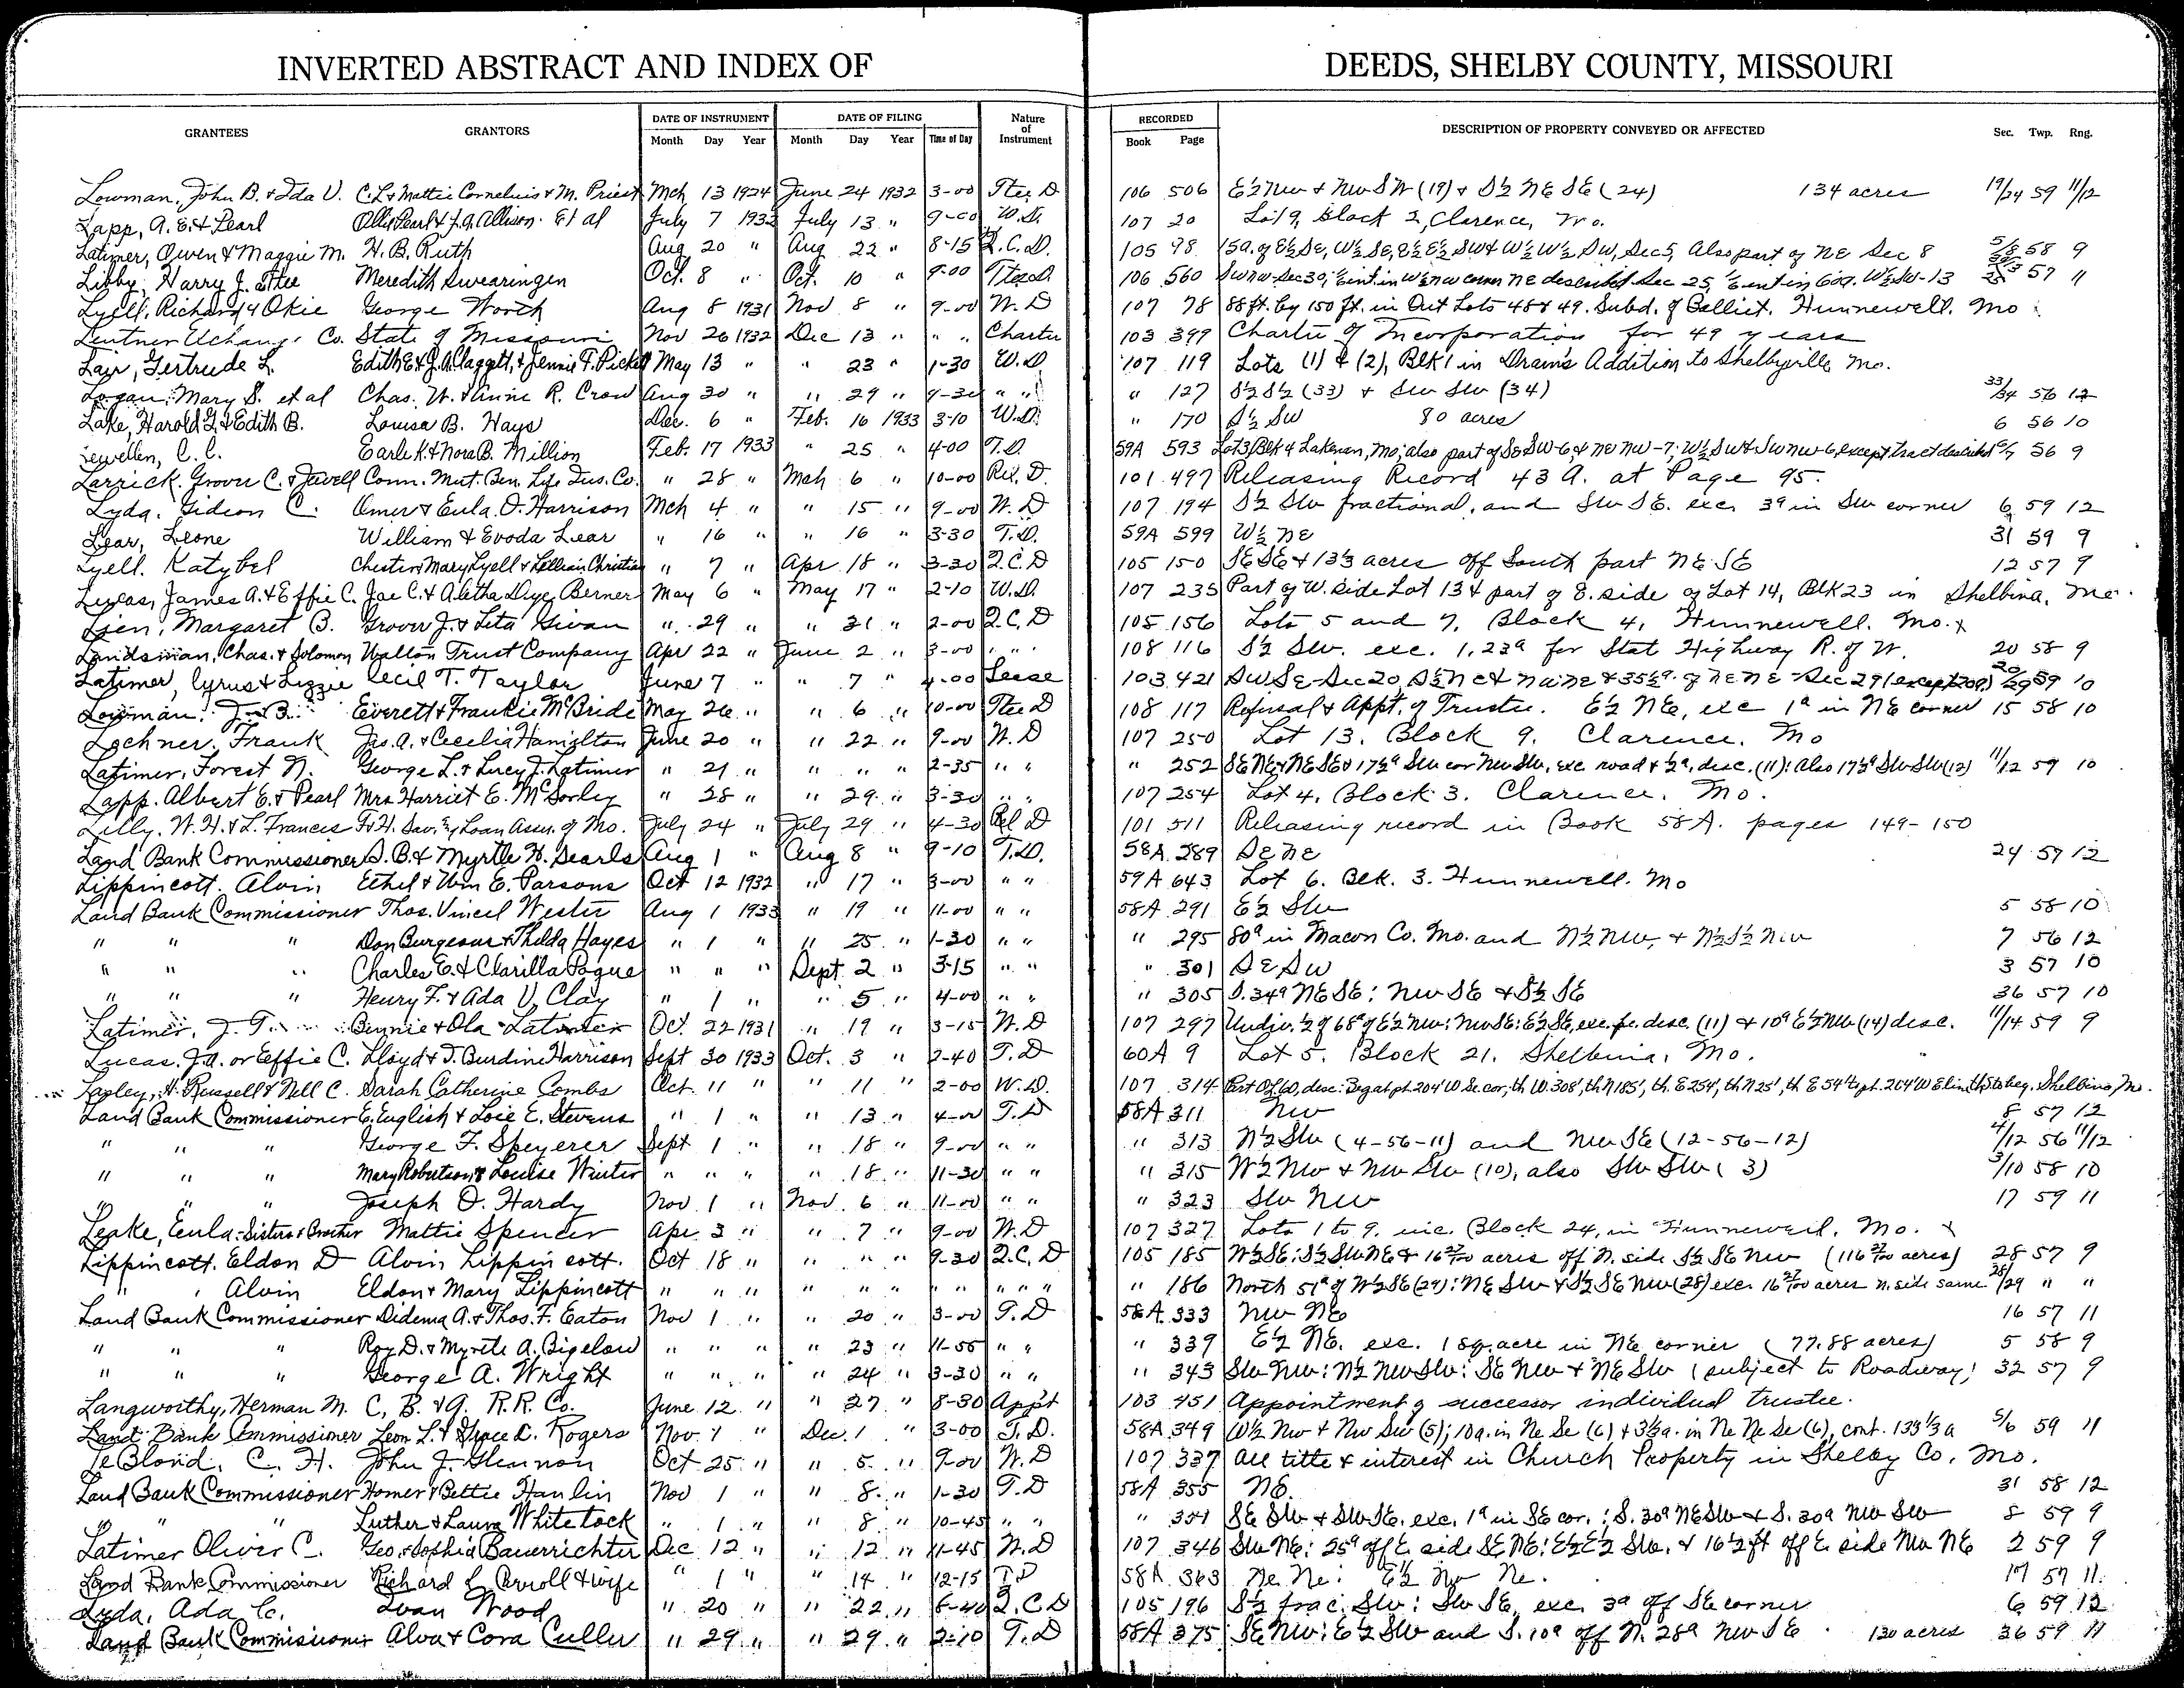 INVERTED ABSTRACT AND INDEX OF DEEDS, SHELBY COUNTY, MISSOURI
GRANTEES GRANTORS DATE OF INSTRUMENT DATE OF FILING Nature of Instrument RECORDED DESCRIPTION OF PROPERTY CONVEYED OR AFFECTED Sec. Twp. Rng.
Month Day Year Month Day Year Time of Day Book Page
Lowman, John B. & Ida V. C.L. & Mattie Cornelius & M. Priest Mch 13 1924 June 24 1932 3-00 Stee D 106 506 E½ NW & NW SW (19) & S½ NE SE (24) 134 acres 19/24 59 11/12
Lapp, A. E. & Pearl Ollie Pearl & J.A. Allison. Et al July 7 1932 July 13 " 9-00 W.D. 107 20 Lot 9, Block 2, Clarence, Mo.
Latimer, Owen & Maggie M. H. B. Ruth Aug 20 " Aug 22 " 8-15 Q.C.D. 105 98 15a. of E½ SE, W½ SE, E½ E½ SW & W½ W½ SW, Sec 5, Also part of NE Sec 8 5/8 58 9
Libby, Harry J. Stee Meredith Swearingen Oct. 8 " Oct. 10 " 9-00 Stee D. 106 560 SW NW Sec 30, in W½ NW corner NE described Sec 25, W½ SW-13 57 11
Lyell, Richard & Okie George Worth Aug 8 1931 Nov 8 " 9-00 W.D 107 78 88 ft. by 150 ft. in Out Lots 48 & 49. Subd. of Gallist. Hunnewell. Mo.
Lentner Exchange Co. State of Missouri Nov 26 1932 Dec 13 " " " Charter 103 399 Charter of Incorporation for 49 years
Lair, Gertrude L. Edith E. & J.A. Claggett, & Jennie F. Pickett May 13 " " 23 " 1-30 W.D. 107 119 Lots (1) & (2), Blk 1 in Dram's Addition to Shelbyville Mo.
Logan, Mary S. et al Chas. W. & Annie R. Crow Aug 30 " " 29 " 9-30 " " " 127 S½ S½ (33) & SW SW (34) 33/34 56 12
Lake, Harold G. & Edith B. Louisa B. Hays Dec. 6 " Feb. 16 1933 3-10 W.D. " 170 S½ SW 80 acres 6 56 10
Lewellen, C. C. Earle K. & Nora B. Million Feb. 17 1933 " 25 " 4-00 T.D. 59A 593 Lot 3, Blk 4 Lakenan, Mo; also part of SE SW-6 & NE NW-7; W½ SW & SW NW-6, except tract described 6/7 56 9
Larrick. Grover C. & Jewell Conn. Mut. Ben. Life Ins. Co. " 28 " Mch 6 " 10-00 Rel. D. 101 497 Releasing Record 43 A. at Page 95.
Lyda. Gideon C. Omer & Eula O. Harrison Mch 4 " " 15 " 9-00 W.D 107 194 S½ SW fractional, and SW SE. exc. 3a in SW corner 6 59 12
Lear, Leone William & Evoda Lear " 16 " " 16 " 3-30 T.D. 59A 599 W½ NE 31 59 9
Lyell. Katybel Chester & Mary Lyell & Lellian Christian " 7 " Apr 18 " 3-30 Q.C.D 105 150 SE SE & 13⅓ acres off South part NE SE 12 57 9
Lucas, James A. & Effie C. Jae C. & Aletha Dye Berner May 6 " May 17 " 2-10 W.D. 107 235 Part of W. side Lot 13 & part of E. side of Lot 14, Blk 23 in Shelbina, Mo.
Lien, Margaret B. Grover J. & Leta Givan " 29 " " 31 " 2-00 Q.C.D 105 156 Lots 5 and 7, Block 4, Hunnewell. Mo. x
Landsman, Chas. & Solomon Walton Trust Company Apr 22 " June 2 " 3-00 " " 108 116 S½ SW. exc. 1.23a for Stat Highway R. of W. 20 58 9
Latimer, Cyrus & Lizzie Cecil T. Taylor June 7 " " 7 " 4-00 Lease 103 421 SW SE Sec 20, S½ NE & NW NE & 35½a. of NE NE Sec 29 (except 20a) 20/29 59 10
Lowman. J. B. Everett & Frankie McBride May 26 " " 6 " 10-00 Stee D 108 117 Refusal & Appt. of Trustee. E½ NE, exc 1a in NE corner 15 58 10
Lochner. Frank Jas. A. & Cecelia Hamilton June 20 " " 22 " 9-00 W.D 107 250 Lot 13. Block 9. Clarence. Mo
Latimer, Forest N. George L. & Lucy J. Latimer " 21 " " " " 2-35 " " " 252 SE NE & NE SE & 17½a SW cor NW SW, exc road & ½a, desc. (11): Also 17½a SW SW (12) 11/12 59 10
Lapp. Albert E. & Pearl Mrs Harriet E. McSorley " 28 " " 29 " 3-30 " " 107 254 Lot 4. Block 3. Clarence. Mo.
Lilly. W. H. & L. Frances F. & H. Sav. & Loan Assn. of Mo. July 24 " July 29 " 4-30 Rel D 101 511 Releasing record in Book 58A. pages 149-150
Land Bank Commissioner S. B. & Myrtle H. Searls Aug 1 " Aug 8 " 9-10 T.D. 58A 289 SE NE 24 57 12
Lippincott. Alvin Ethel & Wm E. Parsons Oct 12 1932 " 17 " 3-00 " " 59A 643 Lot 6. Blk. 3. Hunnewell. Mo
Land Bank Commissioner Thos. Vincel Wester Aug 1 1933 " 19 " 11-00 " " 58A 291 E½ SW 5 58 10
" " " Don Burgeour & Thelda Hayes " 1 " " 25 " 1-30 " " " 295 80a in Macon Co. Mo. and N½ NW, & N½ S½ NW 7 56 12
" " " Charles E. & Clarilla Pogue " " " Sept 2 " 3-15 " " " 301 SE SW 3 57 10
" " " Henry F. & Ada V. Clay " 1 " " 5 " 4-00 " " " 305 S. 34a NE SE: NW SE & S½ SE 36 57 10
Latimer, J. T. Bennie & Ola Latimer Oct. 22 1931 " 19 " 3-15 W.D 107 297 Undiv. ½ of 68a of E½ NW: NW SE: E½ SE, exc. pc. desc. (11) & 10a E½ NW (14) desc. 11/14 59 9
Lucas. J.A. or Effie C. Lloyd & T. Burdine Harrison Sept 30 1933 Oct. 3 " 2-40 T.D 60A 9 Lot 5. Block 21. Shelbina, Mo.
Lapley, H. Russell & Nell C. Sarah Catherine Combs Oct. 11 " " 11 " 2-00 W.D. 107 314 Part OL 60, desc: Beg at pt 204' W Se cor; th W. 308', th N 185', th. E 254', th N 25', th E 54' to pt. 204' W E line, th S to beg. Shelbina, Mo.
Land Bank Commissioner E. English & Lois E. Stevens " 1 " " 13 " 4-00 T.D 58A 311 NW 8 57 12
" " " George F. Speyerer Sept 1 " " 18 " 9-00 " " " 313 N½ SW (4-56-11) and NW SE (12-56-12) 4/12 56 11/12
" " " Mary Robertson & Louise Winter " " " " 18 " 11-30 " " " 315 W½ NW & NW SW (10), also SW SW (3) 3/10 58 10
" " " Joseph O. Hardy Nov 1 " Nov. 6 " 11-00 " " " 323 SW NW 17 59 11
Leake, Eula-Sisters & Brother Mattie Spencer Apr. 3 " " 7 " 9-00 W.D 107 327 Lots 1 to 9. inc. Block 24, in Hunnewell. Mo. x
Lippincott. Eldon D Alvin Lippincott. Oct 18 " " " " 9-30 Q.C.D 105 185 W½ SE: S½ SW NE & 16 27/100 acres off N. side S½ SE NW (116 27/100 acres) 28 57 9
" Alvin Eldon & Mary Lippincott " " " " " " " " " " 186 North 51a of W½ SE (29): NE SW & S½ SE NW (28) exc. 16 27/100 acres N. side same 28/29 " "
Land Bank Commissioner Didema A. & Thos. F. Eaton Nov 1 " " 20 " 3-00 T.D 58A 333 NW NE 16 57 11
" " " Roy D. & Myrtle A. Bigelow " " " " 23 " 11-55 " " " 339 E½ NE. exc. 1 sq. acre in NE corner (77.88 acres) 5 58 9
" " " George A. Wright " " " " 24 " 3-30 " " " 343 SW NW: N½ NW SW: SE NW & NE SW (subject to Roadway) 32 57 9
Langworthy, Herman M. C. B. & Q. R.R. Co. June 12 " " 27 " 8-30 App't 103 451 Appointment of successor individual trustee.
Land Bank Commissioner Leon L. & Grace L. Rogers Nov. 1 " Dec. 1 " 3-00 T.D. 58A 349 W½ NW & NW SW (5); 10a. in NE SE (6) & 3⅓a. in NE NE SE (6), cont. 133⅓a 5/6 59 11
LeBlond, C. H. John J. Glennon Oct 25 " " 5 " 9-00 W.D 107 337 All title & interest in Church Property in Shelby Co, Mo.
Land Bank Commissioner Homer & Bettie Hanlin Nov 1 " " 8 " 1-30 T.D 58A 355 NE. 31 58 12
" " " Luther & Laura Whitelock " 1 " " 8 " 10-45 " " " 351 SE SW & SW SE, exc. 1a in SE cor.: S. 30a NE SW & S. 30a NW SW 8 59 9
Latimer Oliver C. Geo. & Sophia Bauerrichter Dec 12 " " 12 " 11-45 W.D 107 346 SW NE: 25a off E. side SE NE: E½ E½ SW, & 16½ ft off E. side NW NE 2 59 9
Land Bank Commissioner Richard L. Carroll & wife " 1 " " 14 " 12-15 T.D 58A 363 NE NE: E½ NW NE. 17 57 11
Lyda, Ada C. Ivan Wood " 20 " " 22 " 8-40 Q.C.D 105 196 S½ frac. SW: SW SE, exc. 3a off SE corner 6 59 12
Land Bank Commissioner Alva & Cora Culler " 29 " " 29 " 2-10 T.D 58A 375 SE NW: E½ SW and S. 10a off N. 28a NW SE 130 acres 36 59 11